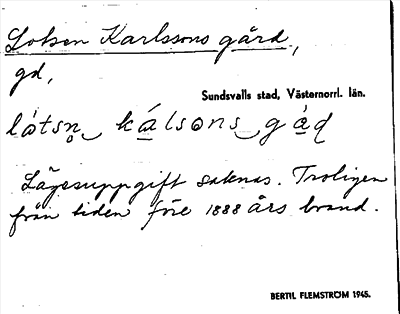 Lotsen Karlssons gård,
gd,
Sundsvalls stad, Västernorrl. län.
lót​sn̥ ká̱lsɷns gá̱ɖ
Lägesuppgift saknas. Troligen
från tiden före 1888 års brand.
BERTIL FLEMSTRÖM 1945.